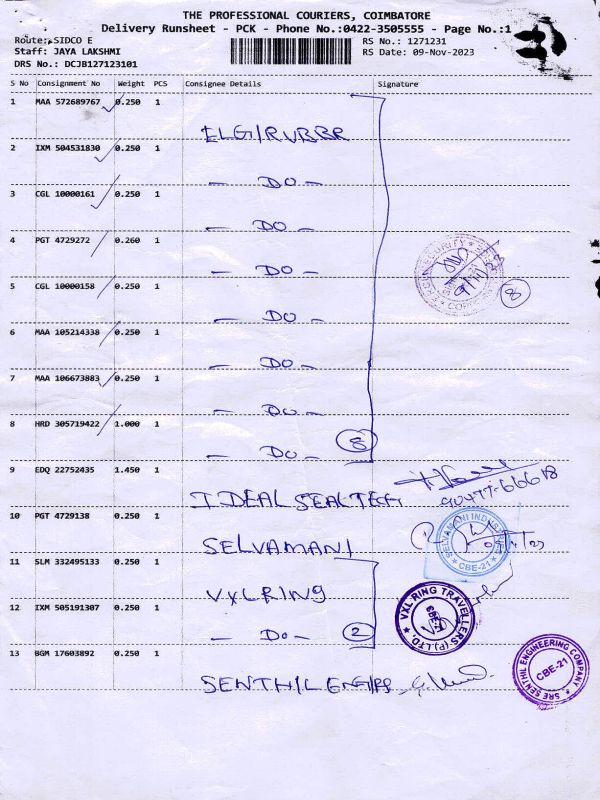 THE PROFESSIONAL COURIERS, COIMBATORE
Delivery Runsheet - PCK - Phone No.:0422-3505555 - Page No.:1
Route: SIDCO E
Staff: JAYA LAKSHMI
DRS No.: DCJB127123101
RS No.: 1271231
RS Date: 09-Nov-2023
S No Consignment No Weight PCS Consignee Details Signature
1 MAA 572689767 0.250 1
ELGI RUBBR
2 IXM 504531830 0.250 1
— DO —
3 CGL 10000161 0.250 1
— DO —
4 PGT 4729272 0.260 1
— DO —
5 CGL 10000158 0.250 1
— DO —
8
6 MAA 105214338 0.250 1
— DO —
7 MAA 106673883 0.250 1
— DO —
8 HRD 305719422 1.000 1
— DO — 8
9 EDQ 22752435 1.450 1
IDEAL SEAL TECH
90477-66618
10 PGT 4729138 0.250 1
SELVAMANI
SELVAMANI INDUSTRIES
CBE-21
11 SLM 332495133 0.250 1
VXLRING
12 IXM 505191307 0.250 1
— DO — 2
VXL RING TRAVELLERS (P) LTD.
CBE-21
13 BGM 17603892 0.250 1
SENTHIL ENGIRS
SRE SENTHIL ENGINEERING COMPANY
CBE-21